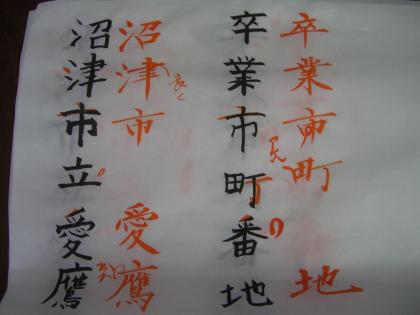 卒業市町地
卒業市町番地
沼津市愛鷹
長く
沼津市立愛鷹